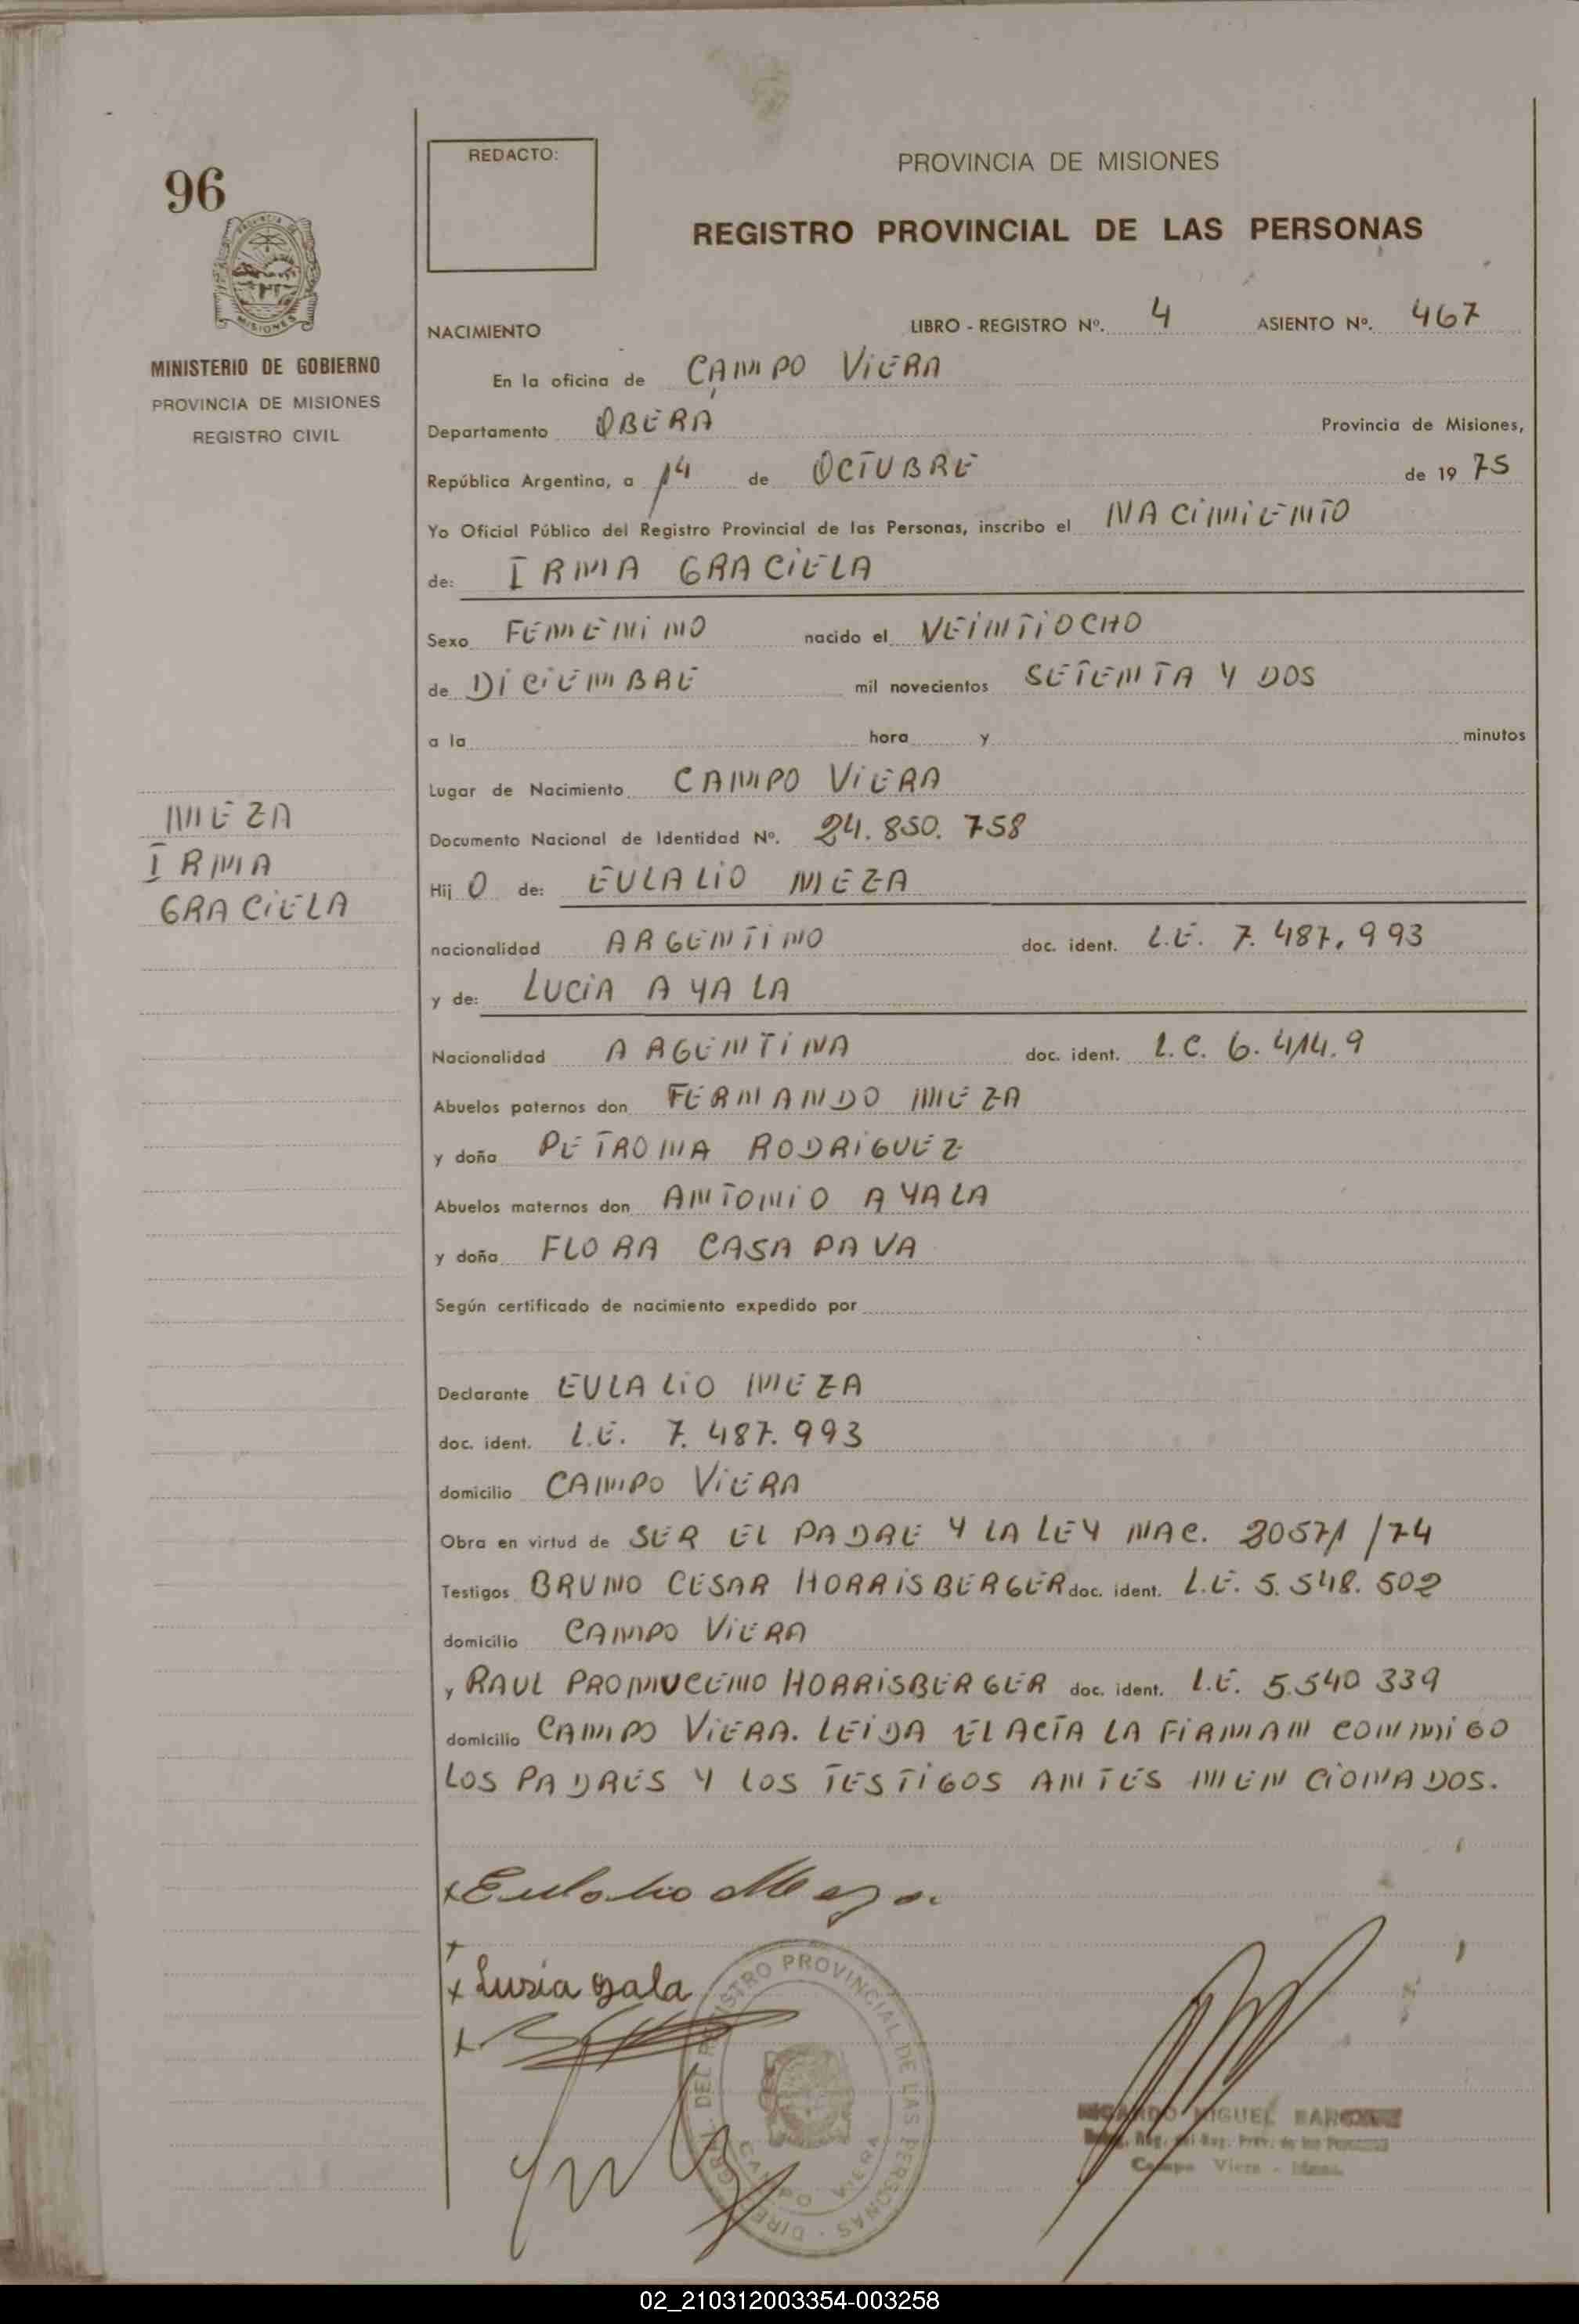 96
REDACTO:
PROVINCIA DE MISIONES
REGISTRO PROVINCIAL DE LAS PERSONAS
MINISTERIO DE GOBIERNO
PROVINCIA DE MISIONES
REGISTRO CIVIL
NACIMIENTO LIBRO - REGISTRO Nº. 4 ASIENTO Nº. 467
En la oficina de CAMPO VIERA
Departamento OBERA Provincia de Misiones,
República Argentina, a 14 de OCTUBRE de 19 75
Yo Oficial Público del Registro Provincial de las Personas, inscribo el NACIMIENTO
de: IRMA GRACIELA
Sexo FEMENINO nacido el VEINTIOCHO
de DICIEMBRE mil novecientos SETENTA Y DOS
a la hora y minutos
Lugar de Nacimiento CAMPO VIERA
MEZA
IRMA
GRACIELA
Documento Nacional de Identidad Nº. 24.850.758
Hij O de: EULALIO MEZA
nacionalidad ARGENTINO doc. ident. L.E. 7.487.993
y de: LUCIA AYALA
Nacionalidad ARGENTINA doc. ident. L.C. 6.414.9
Abuelos paternos don FERNANDO MEZA
y doña PETRONA RODRIGUEZ
Abuelos maternos don ANTONIO AYALA
y doña FLORA CASAPAVA
Según certificado de nacimiento expedido por
Declarante EULALIO MEZA
doc. ident. L.E. 7.487.993
domicilio CAMPO VIERA
Obra en virtud de SER EL PADRE Y LA LEY NAC. 20571/74
Testigos BRUNO CESAR HORRISBERGER doc. ident. L.E. 5.548.502
domicilio CAMPO VIERA
y RAUL PROMUCENO HORRISBERGER doc. ident. L.E. 5.540 339
domicilio CAMPO VIERA. LEIDA EL ACTA LA FIRMAN CONMIGO
LOS PADRES Y LOS TESTIGOS ANTES MENCIONADOS.
x Eulalio Meza.
x Lusia ayala
DIREC. GRAL. DEL REGISTRO PROVINCIAL DE LAS PERSONAS
CAMPO VIERA
RICARDO MIGUEL
Reg. del Reg. Prov. de las Personas
Campo Viera - Mnes.
02_210312003354-003258